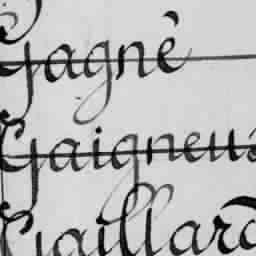 Gagnè
Gaigneux
Gaillard